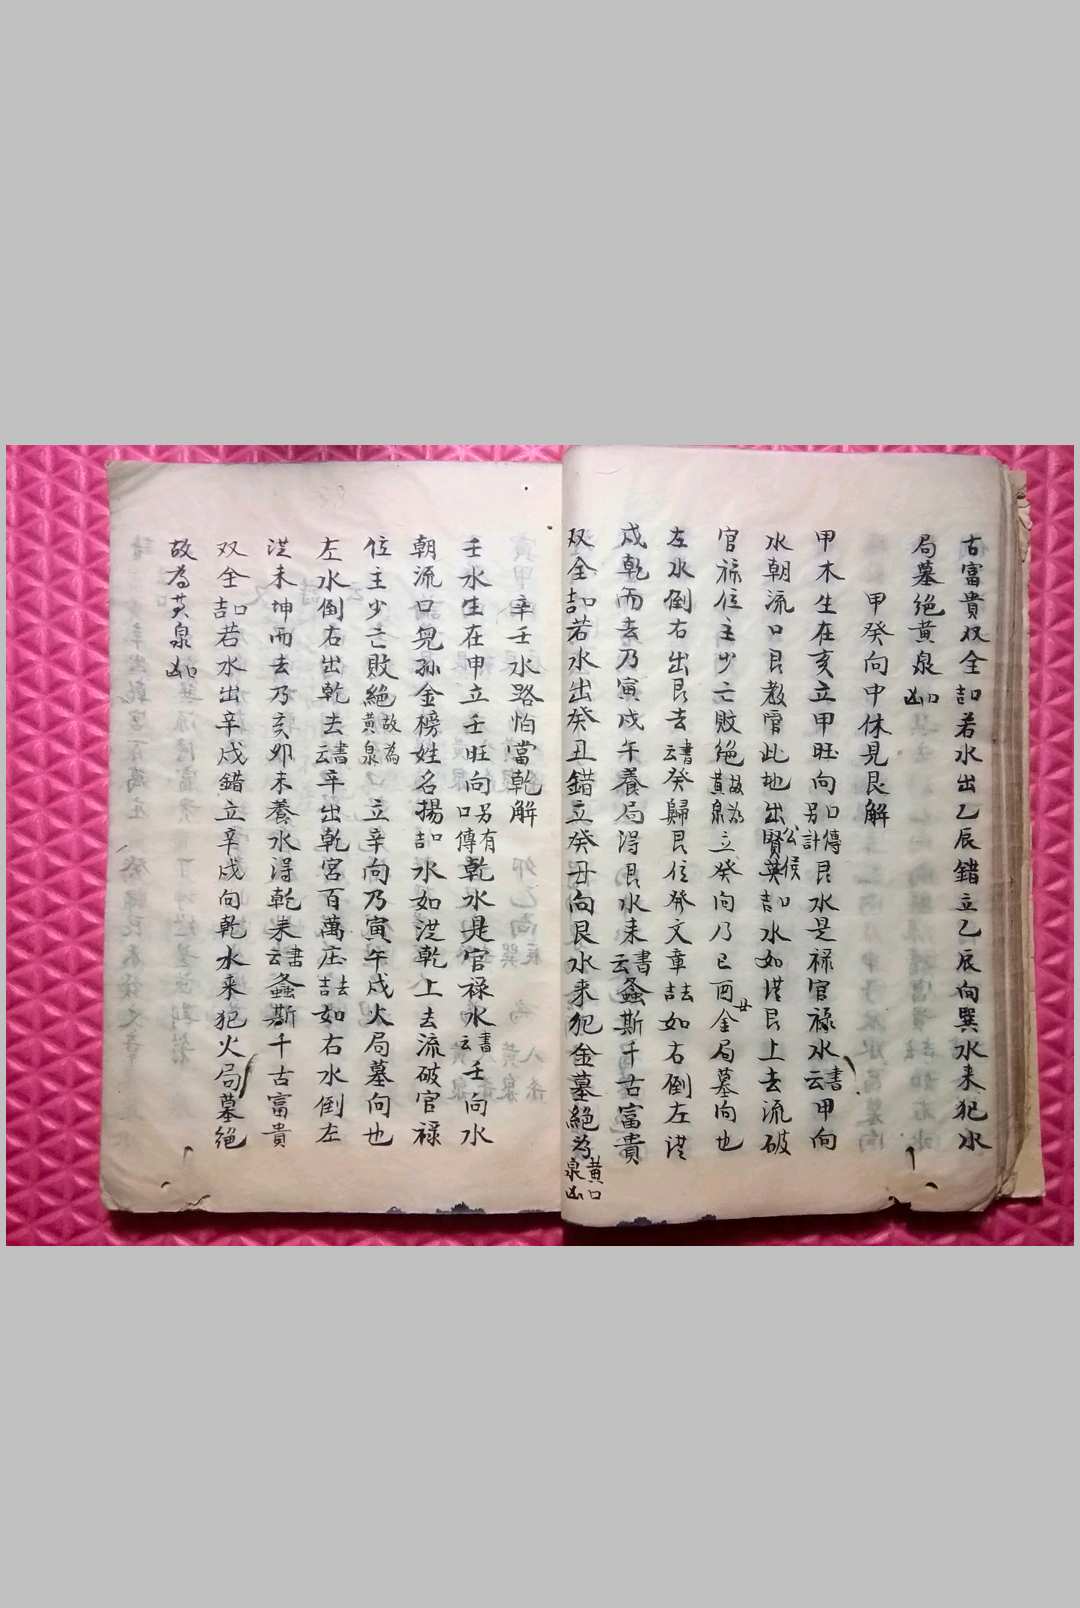 古富貴双全吉口若水出乙辰錯立乙辰向巽水来犯水
局墓絕黄泉凶口
甲癸向中休見艮解
甲木生在亥立甲旺向口傳另計艮水是禄官禄水書云甲向
水朝流口艮教官此地出賢英公侯吉口水如洪艮上去流破
官禄位主少亡敗絕故為黄泉立癸向乃巳酉丑金局墓向也
左水倒右出艮去書云癸歸艮位発文章去吉如右倒左洪
戌乾而去乃寅戌午養局得艮水来書云螽斯千古富貴
双全吉口若水出癸丑錯立癸丑向艮水来犯金墓絕為黄泉口凶
甲辛壬水路怕當乾解
壬水生在申立壬旺向另有口傳乾水是官禄水書云壬向水
朝流口兒孫金榜姓名揚吉口水如洪乾上去流破官禄
位主少亡敗絕故為黄泉口立辛向乃寅午戌火局墓向也
左水倒右出乾去書云辛出乾宮百萬庄去吉如右水倒左
洪未坤而去乃亥卯未養水得乾来書云螽斯千古富貴
双全吉口若水出辛戌錯立辛戌向乾水来犯火局墓絕
故為黄泉凶口